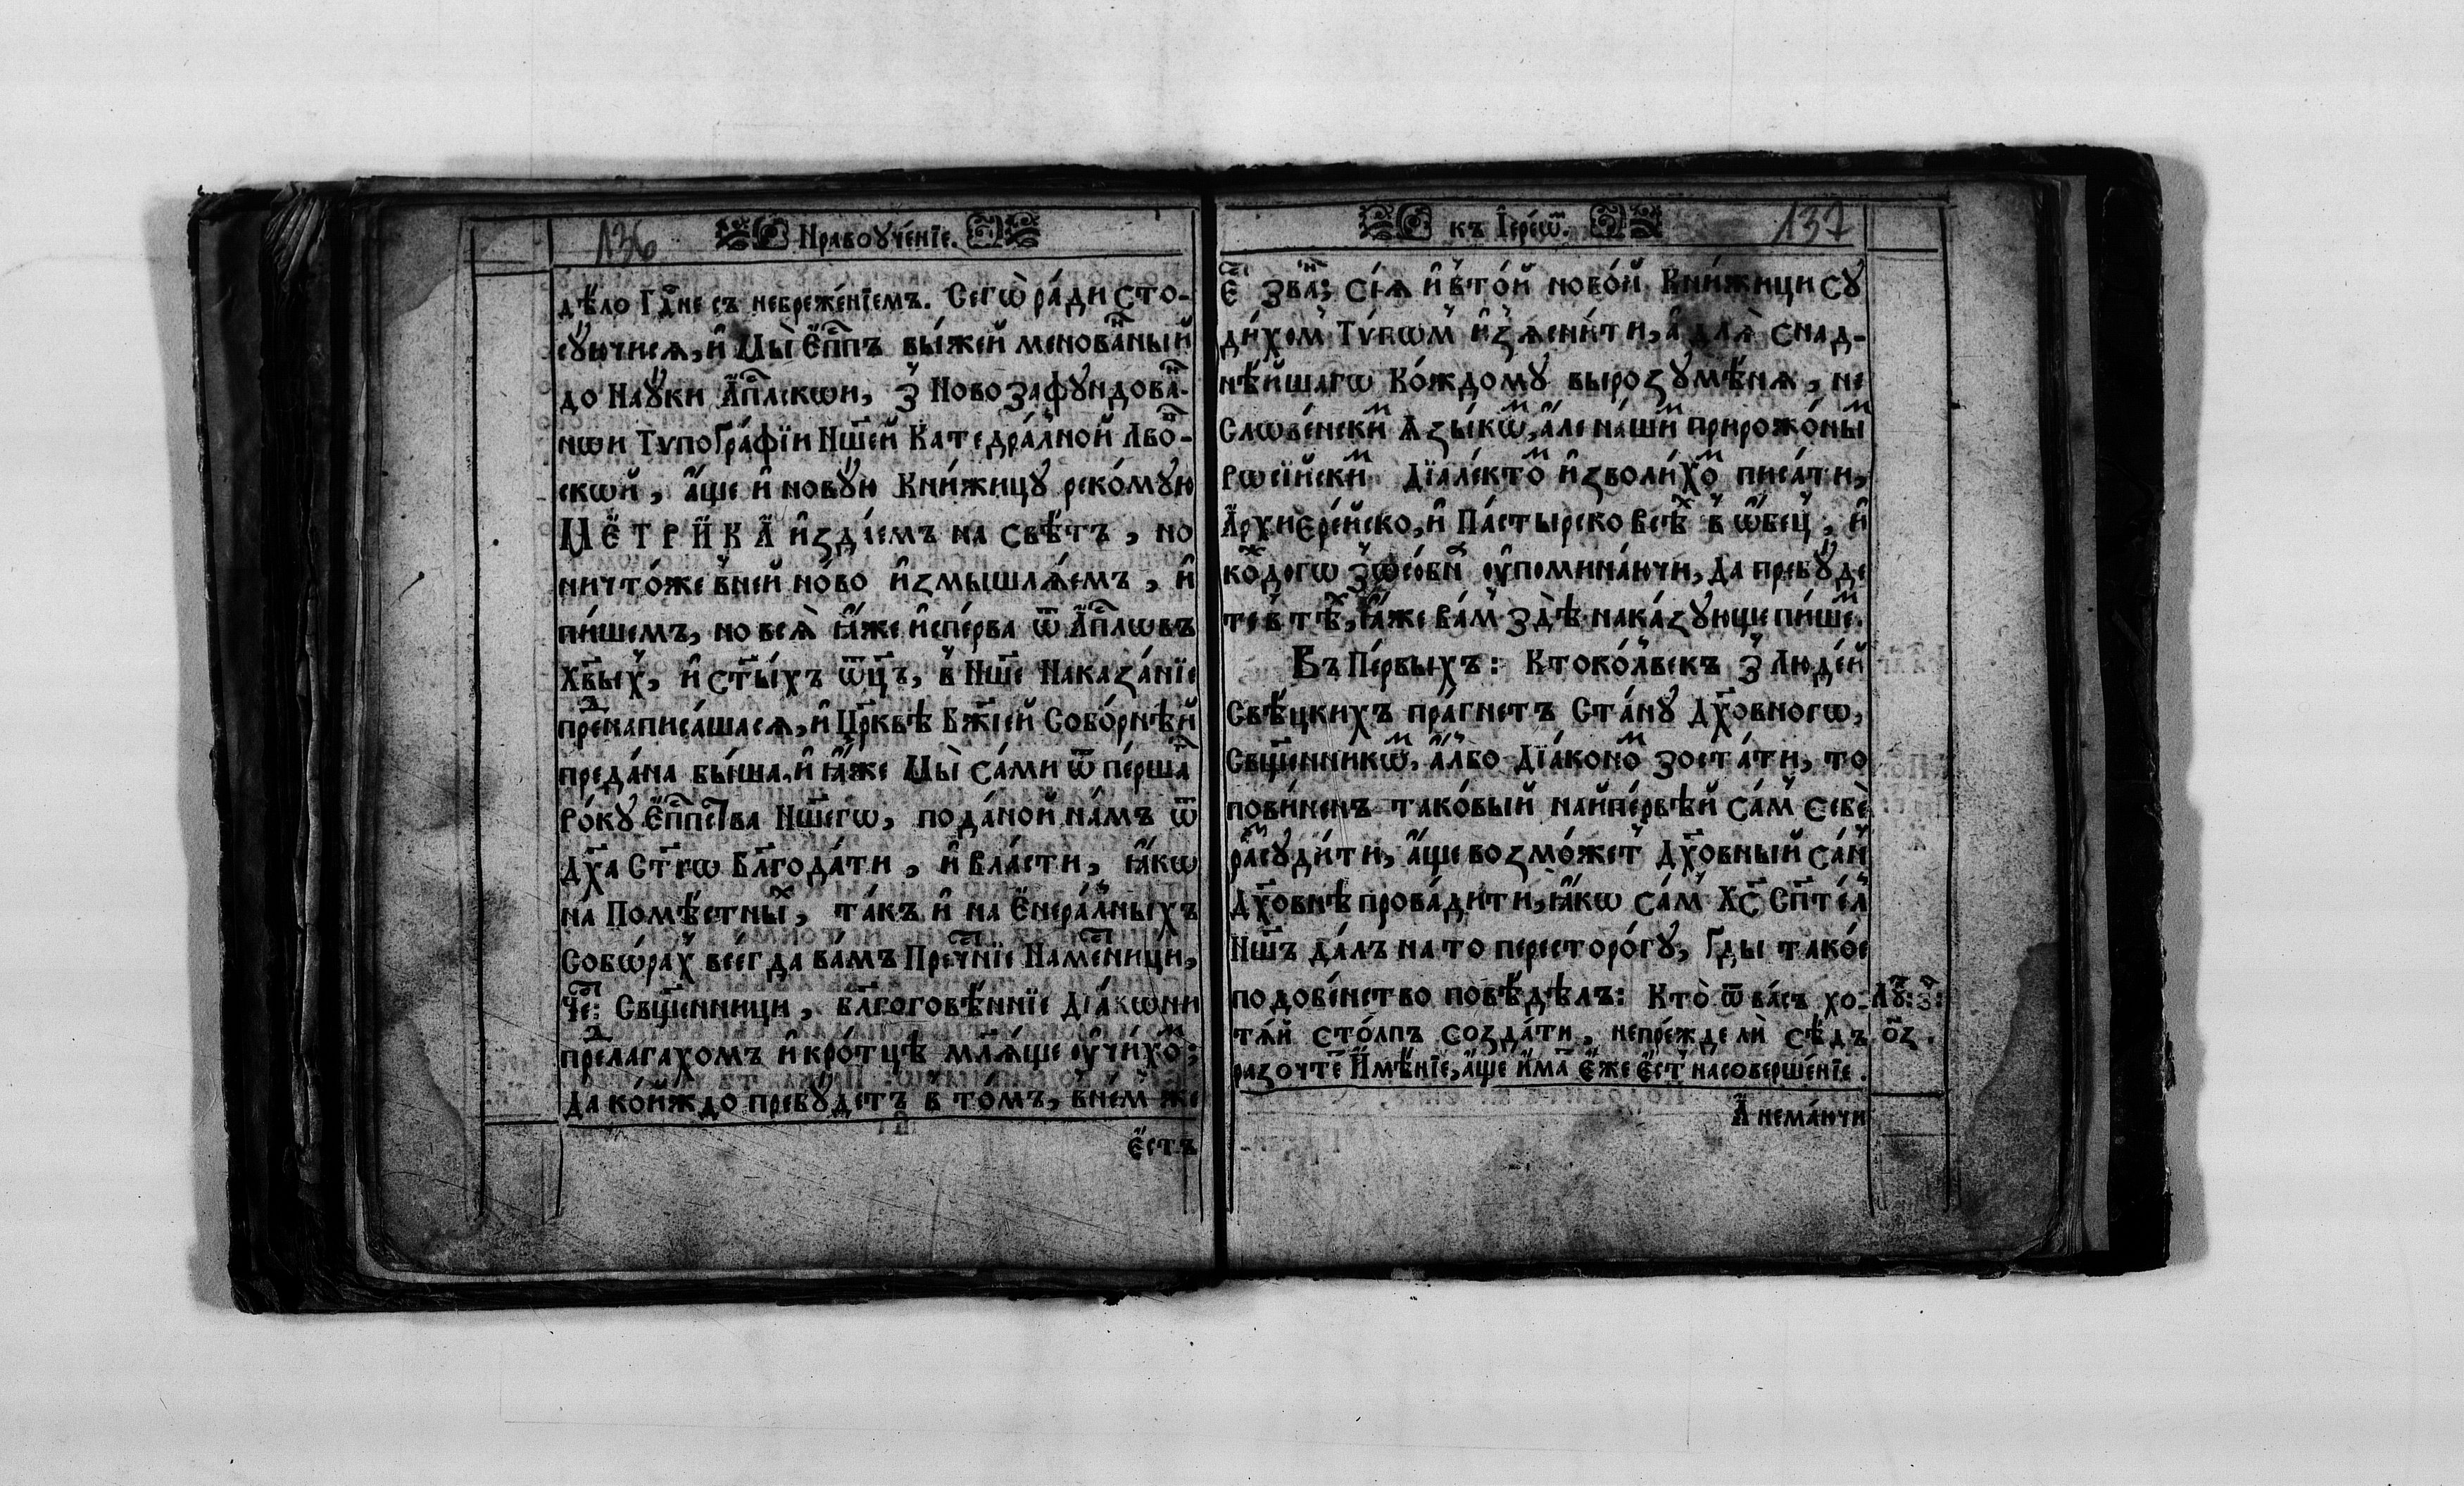 136 Нравоꙋче́нїе.
дѣ́ло Гдⷭ҇не съ небреже́нїемъ. Сегѡ̀ ра́ди Сто-
сꙋ́ючися, и҆ Мы̀ Є҆пⷭ҇пъ вы́жей менова́нⷩ҇ый
до Наꙋ́ки А҆пⷭ҇лскѡи, з̾ Новозафꙋндова́нⷩ҇-
нѡи Тѵпоґра́фїи Нш҃ей Катедра́лной Лвоⷡ҇-
скѡй, а҆́ще и҆ новꙋю Кни́жицꙋ реко́мꙋю
МЕ́ТРИ́КА́ и҆здае́мъ на свѣ́тъ, но
ничто́же в̾ней но́во и҆змышлѧ́емъ, и҆
пи́шемъ, но всѧ̀ ꙗ҆́же и҆спе́рва ѿ А҆пⷭ҇лѡвъ
Хв҃ых̾, и҆ ст҃ы́хъ ѿц҃ъ, в̾ Нш҃е Наказа́нїе
преⷣнаписа́шасѧ, и҆ Цр҃квѣ Бж҃їей Собо́рнѣй
преда́на бы́ша, и҆ ꙗ҆́же Мы̀ са́ми ѿ пе́ршаⷢ҇
Ро́кꙋ Є҆пⷭ҇пства Нш҃егѡ, по да́ной на́мъ ѿ
Дх҃а Ст҃гѡ Бл҃года́ти, и҆ вла́сти, ꙗ҆́кѡ
на Помѣ́стныⷯ, та́къ и҆ на Є҆нера́лныхъ
Собѡ́рах̾ всегда ва́мъ Преⷭ҇чнїе Намѣⷭ҇ници,
Чеⷭ҇: Сщ҃е́нници, бл҃гоговѣ́ннїе Дїа́кѡни
преⷣлагахомъ и҆ кро́тцѣ мл҃ѧ́ще ᲂу҆чи́хоⷨ;
Да ко́йждо пребꙋ́детъ в̾ то́мъ, в̾нем̾ же
є҆́стъ
къ І҆ере́ѡⷨ. 137
е҆ⷭ҇ зва́нⷩ҇; сі́ѧ и҆ в̾ то́й ново́й Кни́жици сꙋ
ди́хом̾ Тѵ́пѡм̾ и҆з̾ѧсни́ти, а҆ длѧ̀ снад-
нѣ́йшагѡ Ко́ждомꙋ вырозꙋмѣ́нѧ, не
Слѡве́нскиⷨ Ѧ҆зы́кѡⷨ, а҆́ле на́шиⷨ прирожо́ныⷨ
Рѡсі́йскиⷨ Дїале́ктоⷨ и҆зволи́хоⷨ писа́ти,
А҆рхиєре́йско, и҆ Па́стырско всѣⷯ в̾ ѻ҆́бец̾, и҆
коⷤ҇догѡ з̾ѻсо́бна ᲂу҆помина́ючи, Да пребꙋ́де
те в̾ тѣⷯ, ꙗ҆́же ва́м̾ здѣ̀ нака́зꙋюще пи́шеⷨ.
Въ Пе́рвыхъ: Ктоко́лвекъ з̾ Люде́й
Свѣ́цкихъ пра́гнетъ Ста́нꙋ Дх҃овногѡ,
Сщ҃е́нникѡⷨ, а҆́лбо Дїа́коноⷨ зоста́ти, то
пови́ненъ тако́вый найпе́рвѣй са́м̾ себѐ
раⷥсꙋди́ти, а҆́ще возмо́жет̾ Дх҃о́вный са́н̾
Дх҃о́внѣ прова́дити, ꙗ҆́кѡ са́м̾ Хс҃ Сп҃те́л̾
Нш҃ъ да́лъ на то пересторо́гꙋ, Ґды тако́е
подобе́нство повѣ́дѣлъ: Кто̀ ѿ ва́съ хо-
тѧ́й сто́лпъ созда́ти, непре́жде ли̂ сѣ́дъ
разочте́ⷮ И҆мѣ́нїе, а҆́ще и҆́маⷮ Є҆́же є҆́ст̾ на соверше́нїе.
Лꙋⷦ҇: з҃і:
ѻ҃з.
А҆ нема́ючи